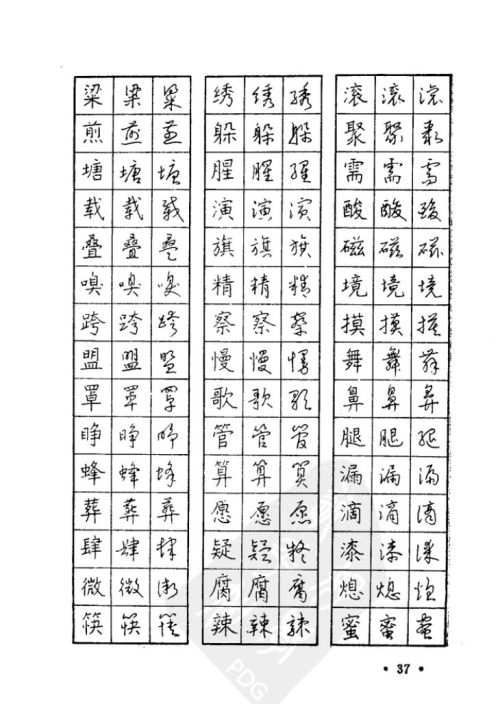 粱 粱 粱 绣 绣 绣 滚 滚 滚
煎 煎 煎 躲 躲 躲 聚 聚 聚
塘 塘 塘 腥 腥 腥 需 需 需
载 载 载 演 演 演 酸 酸 酸
叠 叠 叠 旗 旗 旗 磁 磁 磁
嗅 嗅 嗅 精 精 精 境 境 境
跨 跨 跨 察 察 察 摸 摸 摸
盟 盟 盟 慢 慢 慢 舞 舞 舞
罩 罩 罩 歌 歌 歌 鼻 鼻 鼻
睁 睁 睁 管 管 管 腿 腿 腿
蜂 蜂 蜂 算 算 算 漏 漏 漏
葬 葬 葬 愿 愿 愿 滴 滴 滴
肆 肆 肆 疑 疑 疑 漆 漆 漆
微 微 微 腐 腐 腐 熄 熄 熄
筷 筷 筷 辣 辣 辣 蜜 蜜 蜜
· 37 ·
PDG